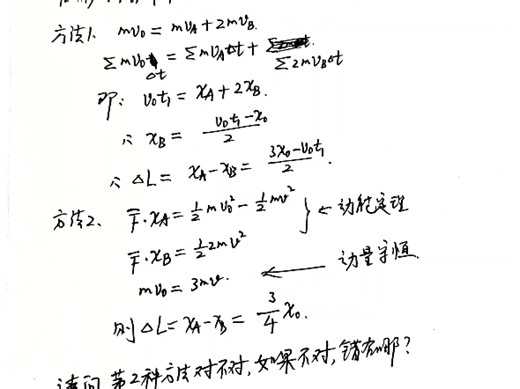 方法1. mv₀ = mv_A + 2mv_B.
∑mv₀Δt = ∑mv_AΔt + ∑2mv_BΔt
即: v₀t₁ = x_A + 2x_B.
∴ x_B = (v₀t₁ - x₀)/2
∴ ΔL = x_A - x_B = (3x₀ - v₀t₁)/2.
方法2. F̅·x_A = ½mv₀² - ½mv² } ← 动能定理
F̅·x_B = ½2mv²
mv₀ = 3mv. ← 动量守恒
则ΔL = x_A - x_B = ¾x₀.
请问 第2种方法对不对, 如果不对, 错在哪?